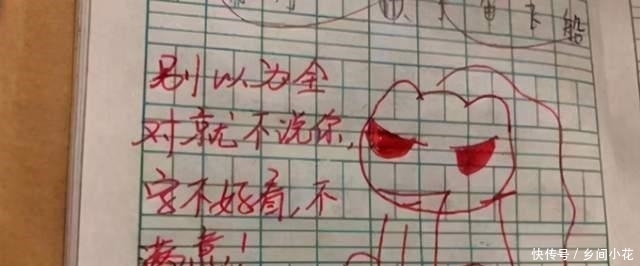 下船
别以为全
对就不说你,
字不好看,不
满意!
快传号/乡间小花